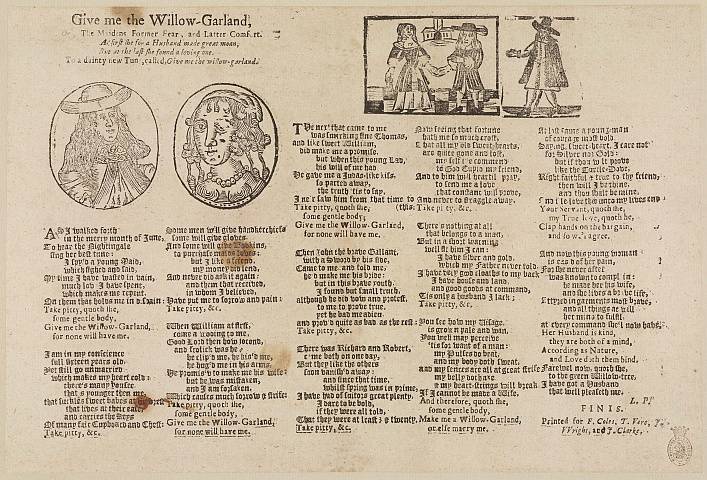 Give me the Willow-Garland,
Or, The Maidens Former Fear, and Latter Comfort.
At first she for a Husband made great moan,
But at the last she found a loving one.
To a dainty new Tune, called, Give me the willow-garland.
AS I walked forth
in the merry month of June,
To hear the Nightingale
sing her best tune:
I spy'd a young Maid,
which sighed and said,
My time I have wasted in vain,
much love I have spent,
which makes me repent.
No man that holds me in
Take pitty, quoth she,
some gentle body,
Give me the Willow-Garland,
for none will have me.
I am in my conscience
full fifteen years old,
Yet still go unmarried
which makes my heart cold:
there's many
that's younger then me,
that suckles sweet babes at
that lives at their ease,
and carries the keys
Of many fair Cupboard and Chest:
Take pitty, &c.
Some men will give handkerchiefs
some will give gloves,
And some will give Bodkins,
to purchase maids loves:
but I like a
my money did lend,
And never did ask it again:
and them that received,
in whom I believed,
Have put me to sorrow and pain:
Take pitty, &c.
When William at first,
came a wooing to me,
Good Lord then how jocond,
and frolick was he;
he clip'd me, he kis'd me,
he hug'd me in his arms,
He promis'd to make me his wife:
but he was mistaken,
and I am forsaken.
Which causes much sorrow & strife:
Take pitty, quoth she,
some gentle body,
Give me the Willow-Garland,
for none will have me.
The next that came to me
was smerking fine Thomas,
and like sweet William,
did make me a promise.
but when this young Lad,
his will of me had
He gave me a Judas-like kiss,
so parted away,
the truth for to say,
I ne'r saw him from that time to (this:
Take pitty, quoth she,
some gentle body,
Give me the Willow-Garland,
for none will have me.
Then John the brave Gallant,
with a Sword by his side,
Came to me and told me,
he'd make me his bride:
but in this brave youth
I found but small truth,
although he did vow and protest,
to me to prove true,
yet he bad me adieu,
and prov'd quite as bad as the rest:
Take pitty, &c.
There was Richard and Robert,
came both on one day,
But they like the others
from vanish'd away:
and since that time,
whilst spring was in prime,
I have had of suitors great plenty,
I dare to be bold,
if they were all told,
That there was at the least; a twenty.
Take pitty, &c.
Now seeing that fortune
hath me so much crost,
That all my old sweet-hearts,
are quite gone and lost,
my self I'le commend
to God Cupid my friend,
And to him will heartily pray,
to send me a love
that constant will prove,
And not from me to run away:
Take pitty, &c.
There's nothing at all
that belongs to a man,
But in a short warning
well fit him I can:
I have silver and gold,
which my Father never told
I have very good cloaths to my back
I have house and land
and good goods at command,
Tis only a husband I lack;
Take pitty, &c.
You see how my Visage
is grown pale and wan,
You well may perceive
'tis for want of a man:
my Pulses do beat,
and my body doth sweat,
and my senses are all at great strife
my belly doth ake
& my heart-strings will break
If I cannot be made a Wife.
And therefore, quoth she,
some gentle body,
Make me a Willow-Garland,
or else marry me.
At last came a young-man
of courage most bold,
Saying, sweet-heart, I care not
for Silver nor Gold:
but if thou wilt prove
like the Turtle-Dove,
Right faithful & true to thy friend,
then will I be thine,
and thou shalt be mine,
And I'le love thee unto my lives end
Your Servant, quoth she,
my True love, quoth he,
Clap hands on the bargain,
and so we's agree.
And now this young woman
is eas'd of her pain,
For she never after
was known to complain:
he made her his wife,
and she lives a brave life,
Attyr'd in garments most brave,
and all things at will
her mind to fulfil,
at every command she'l now have:
Her Husband is kind,
they are both of a mind,
According as Nature,
and Love doth them bind.
Farewel now, quoth she,
to the green Willow-tree,
I have got a Husband
that well pleaseth me.
L. P.
FINIS.
Printed for F. Coles, T. Vere, J.
Wright, and J. Clarke.